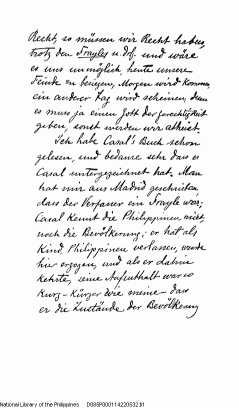 Recht, so müssen wir Recht haben,
trotz den Frayles u. Drf. und wäre
es uns unmöglich, heute unsere
Feinde zu besiegen, Morgen wird kommen
ein anderer Tag wird scheinen, denn
es muss ja einen Gott der Gerechtigkeit
geben, sonst werden wir atheist.
Ich habe Casal's Buch schon
gelesen, und bedaure sehr dass es
Casal untergezeichnet hat. Man
hat mir aus Madrid geschrieben
dass der Verfasser ein Frayle war;
Casal kennt die Philippinen nicht,
noch die Bevölkerung; er hat als
Kind Philippinen verlassen, wurde
hier erzogen, und als er dahin
kehrte, seine Aufenthalt war so
kurz - kürzer wie meine - dass
er die Zustände der Bevölkerung
National Library of the Philippines